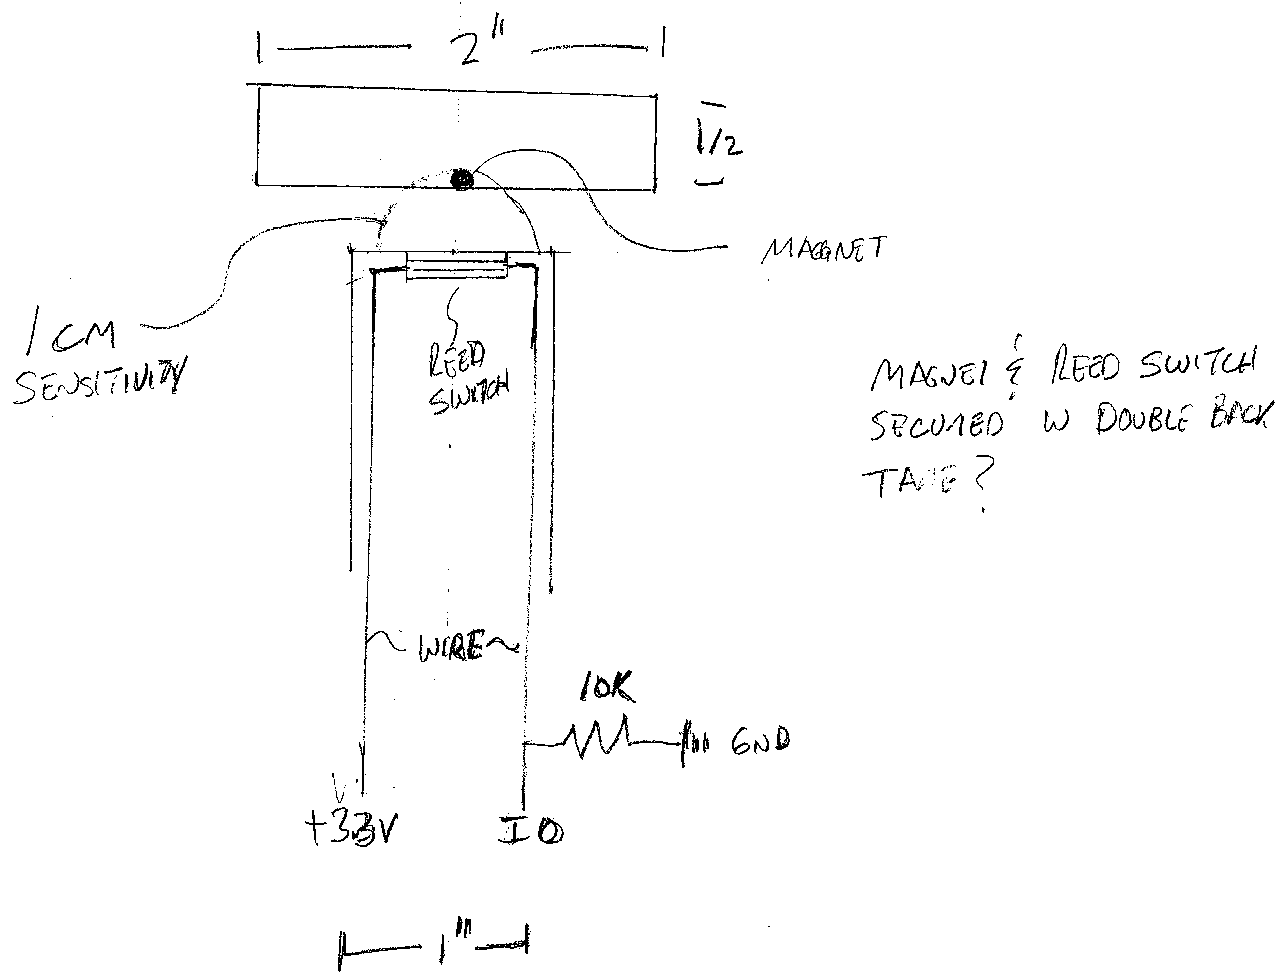 2"
1/2
MAGNET
1 CM
SENSITIVITY
REED
SWITCH
MAGNET & REED SWITCH
SECURED W DOUBLE BACK
TAPE?
WIRE
10K
GND
+33V
IO
1"